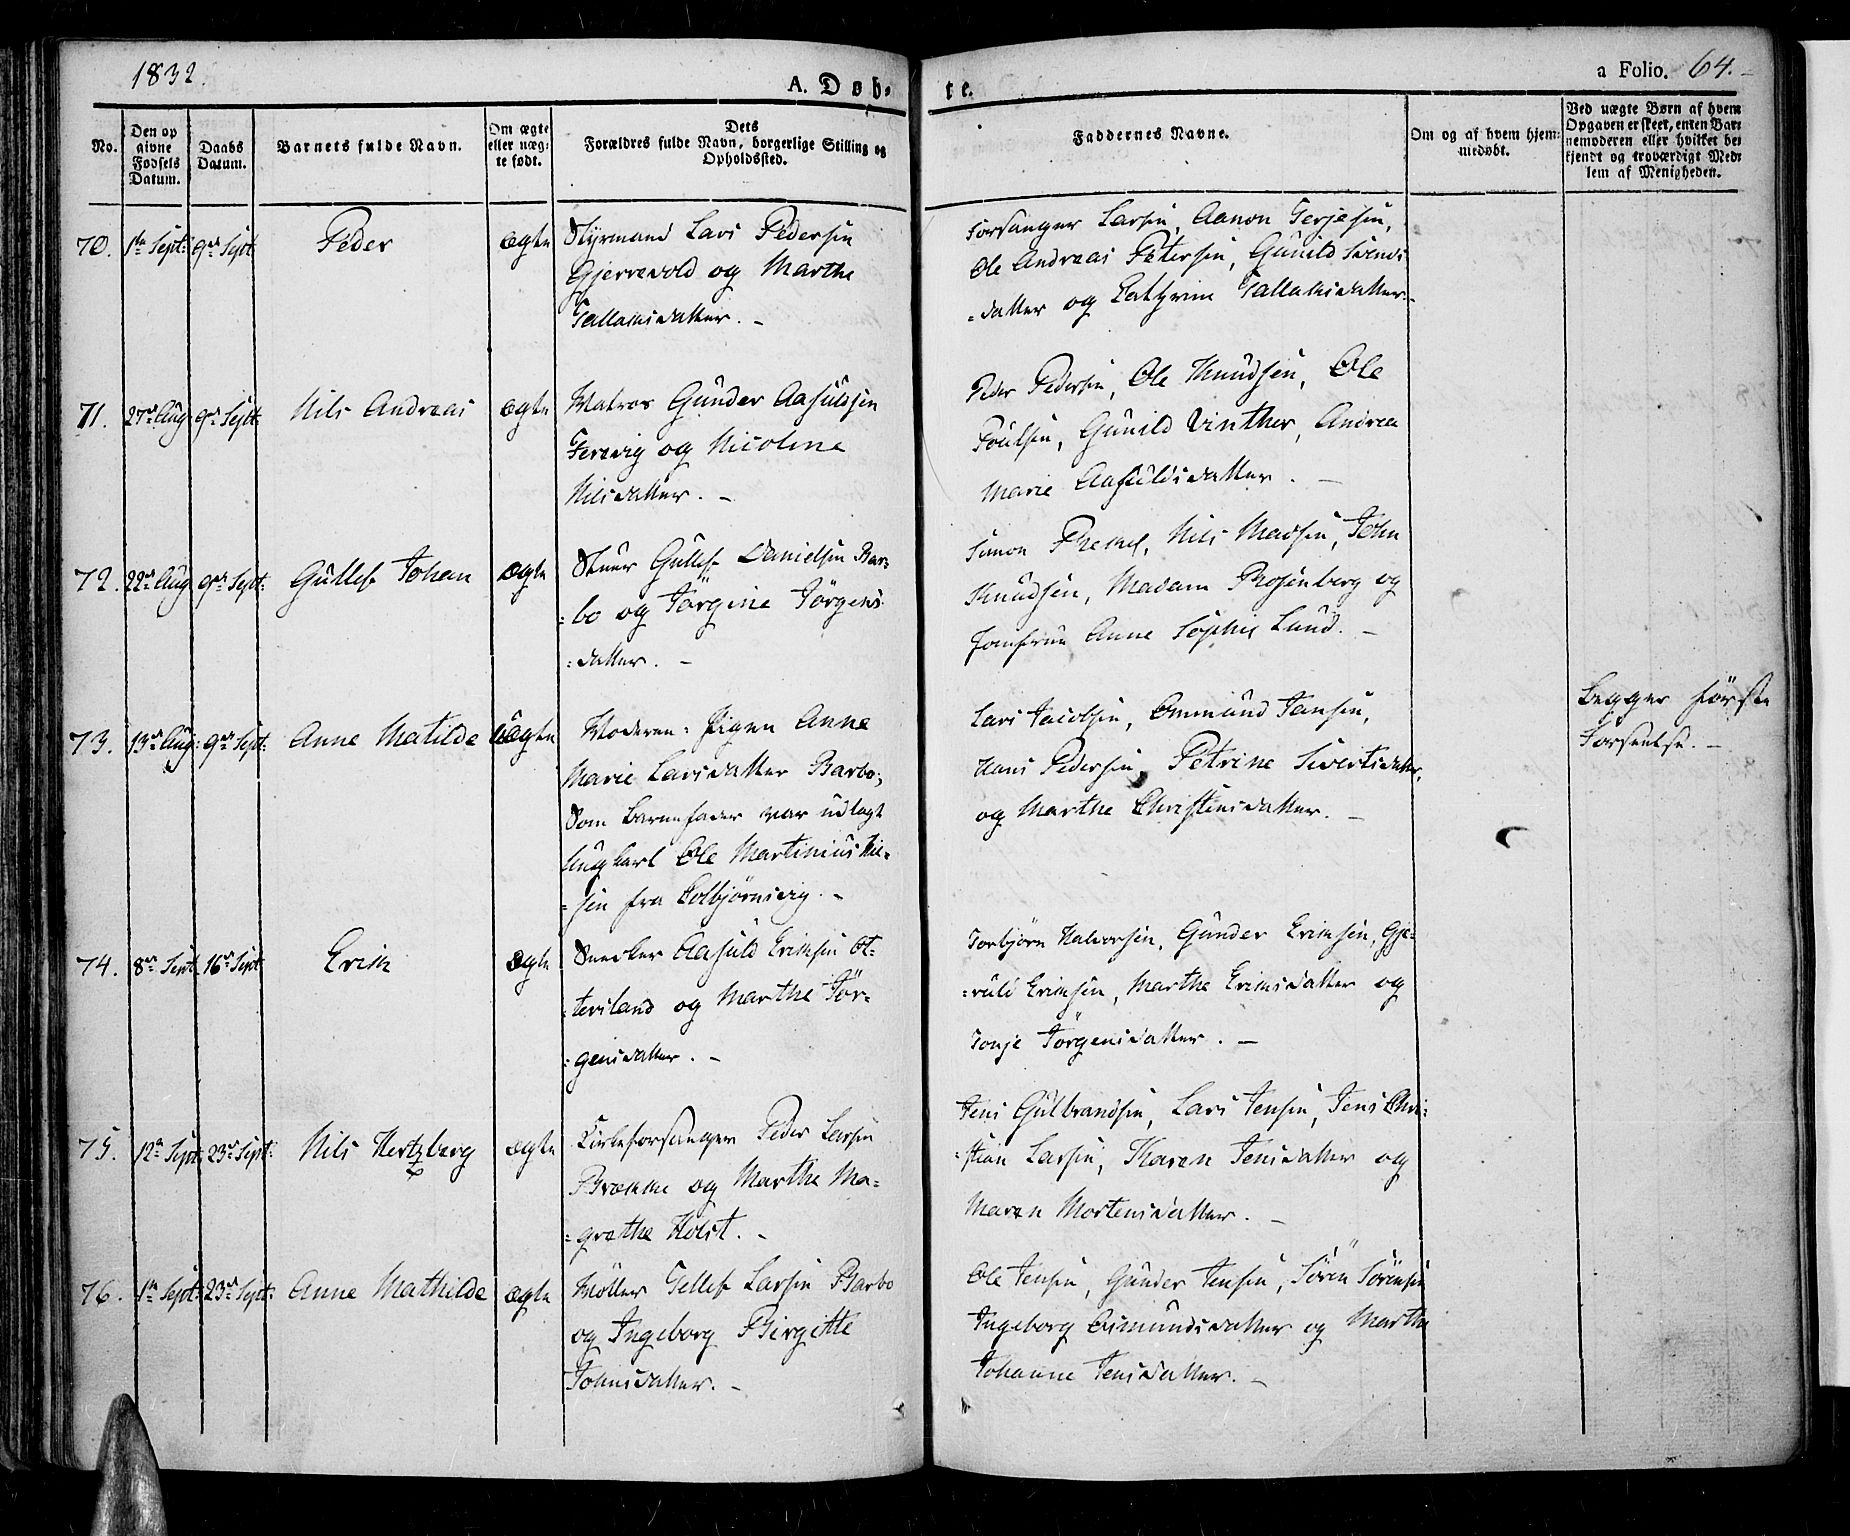 1832.
A. Døb-
te.
a Folio. 64.
No.
Den op
givne
Fødsels
Datum.
Daabs
Datum.
Barnets fulde Navn.
Om ægte
eller uæg-
te født.
Dets
Forældres fulde Navn, borgerlige Stilling og
Opholdssted.
Faddernes Navne.
Om og af hvem hjem-
medøbt.
Ved uægte Børn af hvem
Opgaven er skeet, enten Bar-
nemoderen eller hvilket be-
kjendt og troværdigt Med-
lem af Menigheden.
70. 1ste Sept: 9de Sept Peder ægte Styrmand Lars Pedersen
Gjervevold og Marthe
Tallaksdatter. -
Forsanger Larsen, Aanon Terjesen,
Ole Andreas Petersen, Gunild Svends
=datter og Cathrine Tallaksdatter.
71. 27de Aug 9de Sept: Nils Andreas ægte Matros Gunder Aasulsen
Torevig og Nicoline
Nilsdatter. -
Peder Pedersen, Ole Knudsen, Ole
Poulsen, Gunild Vinther, Andrea
Marie Aasuldsdatter. -
72. 22de Aug 9de Sept: Gullef Johan ægte Stuer Gullef Danielsen Bar-
=bo og Jørgine Jørgens
=datter. -
Simon Knudsen, Madam Rosenberg og
Jomfrue Anne Sophie Lund. -
73. 13de Aug: 9de Sept: Anne Matilde uægte Moderen: Pigen Anne
Marie Larsdatter Barbo;
Som Barnefader var udlagt
Ungkarl Ole Martinius Nil-
=sen fra Colbjørnsvig. -
Lars Jacobsen, Ommund Jansen,
Hans Pedersen, Petrine Sivertsdatter,
og Marthe Christensdatter. -
Begges første
Forseelse. -
74. 8de Sept 16de Sept Erik ægte Snedker Aasuld Eriksen Ot-
=tersland og Marthe Jør-
=gensdatter. -
Torbjørn Halvorsen, Gunder Eriksen, Gje-
=ruld Eriksen, Marthe Eriksdatter og
Tonje Jørgensdatter. -
75. 12te Sept: 23de Sept: Nils Hertzberg ægte Kirkeforsanger Peder Larsen
Brække og Marthe Ma-
=grethe Holst. -
Jens Gulbrandsen, Lars Jensen, Jens Chri-
=stian Larsen, Karen Jensdatter og
Maren Mortensdatter. -
76. 1ste Sept: 23de Sept: Anne Mathilde ægte Møller Tellef Larsen Barbo
og Ingeborg Birgitte
Johnsdatter. -
Ole Jensen, Gunder Jensen, Sören Sörensen
Ingeborg Osmundsdatter og Marthe
Johanne Jensdatter. -